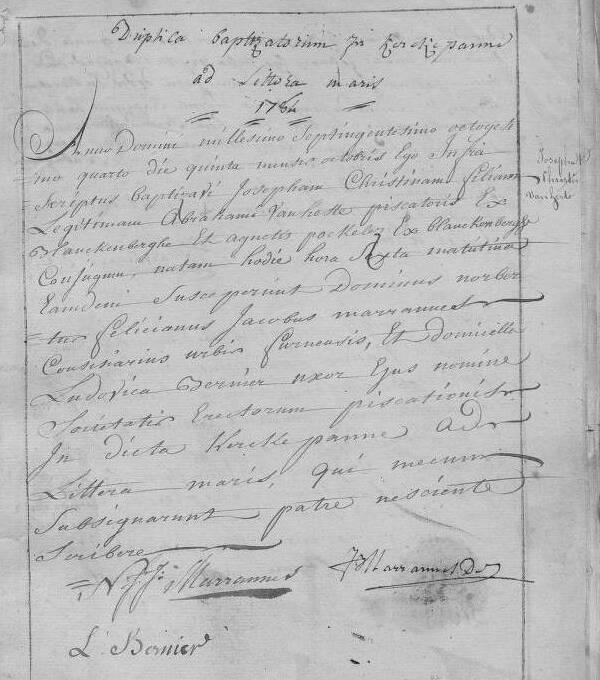 Duplica baptizatorum in Kerckepanne
ad Littora maris
1784
Anno Domini millesimo Septingentesimo octogesi
mo quarto die quinta mensis octobris Ego Infra
Scriptus baptizavi Josepham Christinam filiam
Legitimam Abrahami Vanheste piscatoris Ex
Blanckenberghe Et agnetis pockeloz Ex blanckenberghe
Conjugum, natam hodie hora Sexta matutina
Eamdem Susceperunt Dominus norber
tus felicianus Jacobus marrannes
Consiliarius urbis furnensis, Et domicella
Ludovica Bernier uxor Ejus nomine
Societatis Erectorum piscationis
In dicta Kerckepanne Ad
Littora maris, qui mecum
Subsignarunt patre nesciente
Scribere
Josepha
Christin
Vanheste
N f j Marrannes
L Bernier